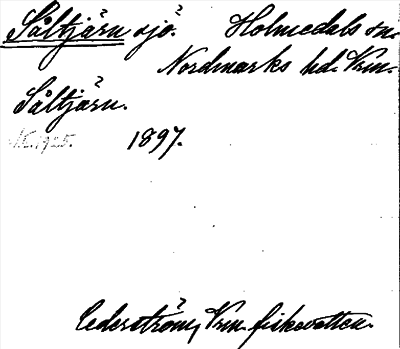 Såltjärn sjö. Holmedals sn.
Nordmarks hd. Vrm.
Såltjärn.
1925. 1897.
Cederström, Vrm. fiskevatten.